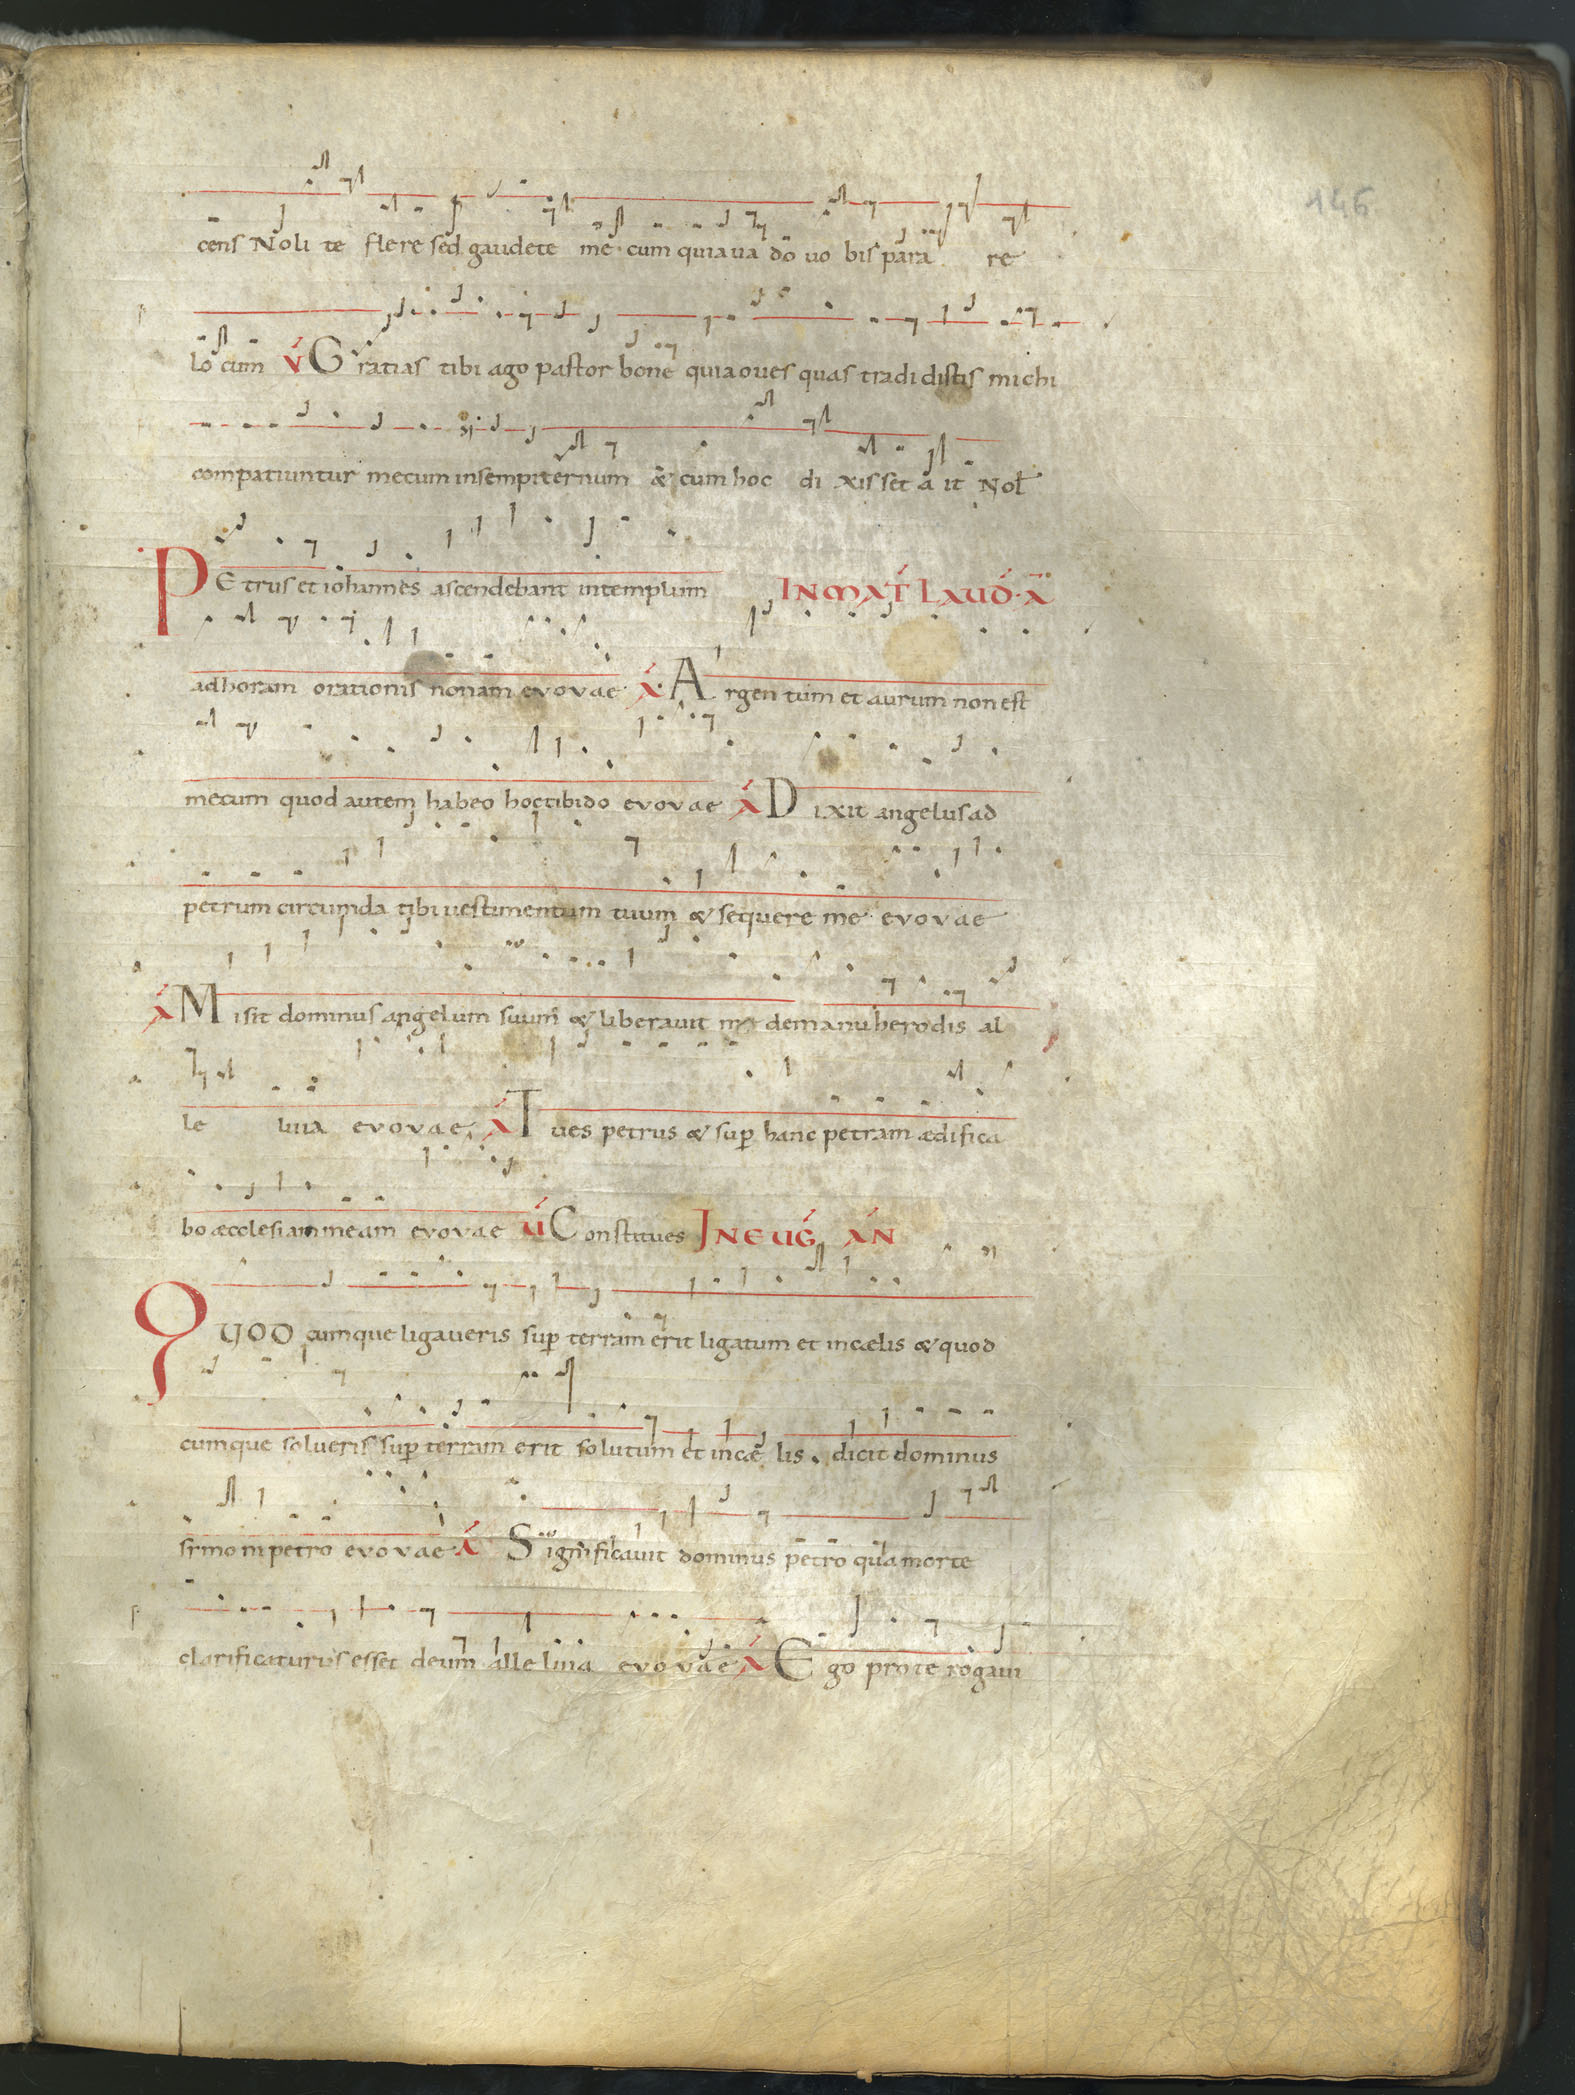 146
cens Noli te flere sed gaudete me cum quia ua do uo bis para re
lo cum V Gratias tibi ago pastor bone quia oues quas tradidistis michi
compatiuntur mecum in sempiternum & cum hoc di xisset a it Nol
PEtrus et iohannes ascendebant in templum IN MAT LAUD A
ad horam orationis nonam evovae A Argentum et aurum non est
mecum quod autem habeo hoc tibi do evovae A Dixit angelus ad
petrum circumda tibi uestimentum tuum & sequere me evovae
A Misit dominus angelum suum & liberauit me de manu herodis al
le luia evovae A Tu es petrus & sup hanc petram ædifica
bo æcclesiam meam evovae V Constitues IN EUG AN
QUOD cumque ligaueris sup terram erit ligatum et in cælis & quod
cumque solueris sup terram erit solutum et in cæ lis . dicit dominus
simoni petro evovae A Significauit dominus petro qua morte
clarificaturus esset deum alleluia evovae A Ego pro te rogaui